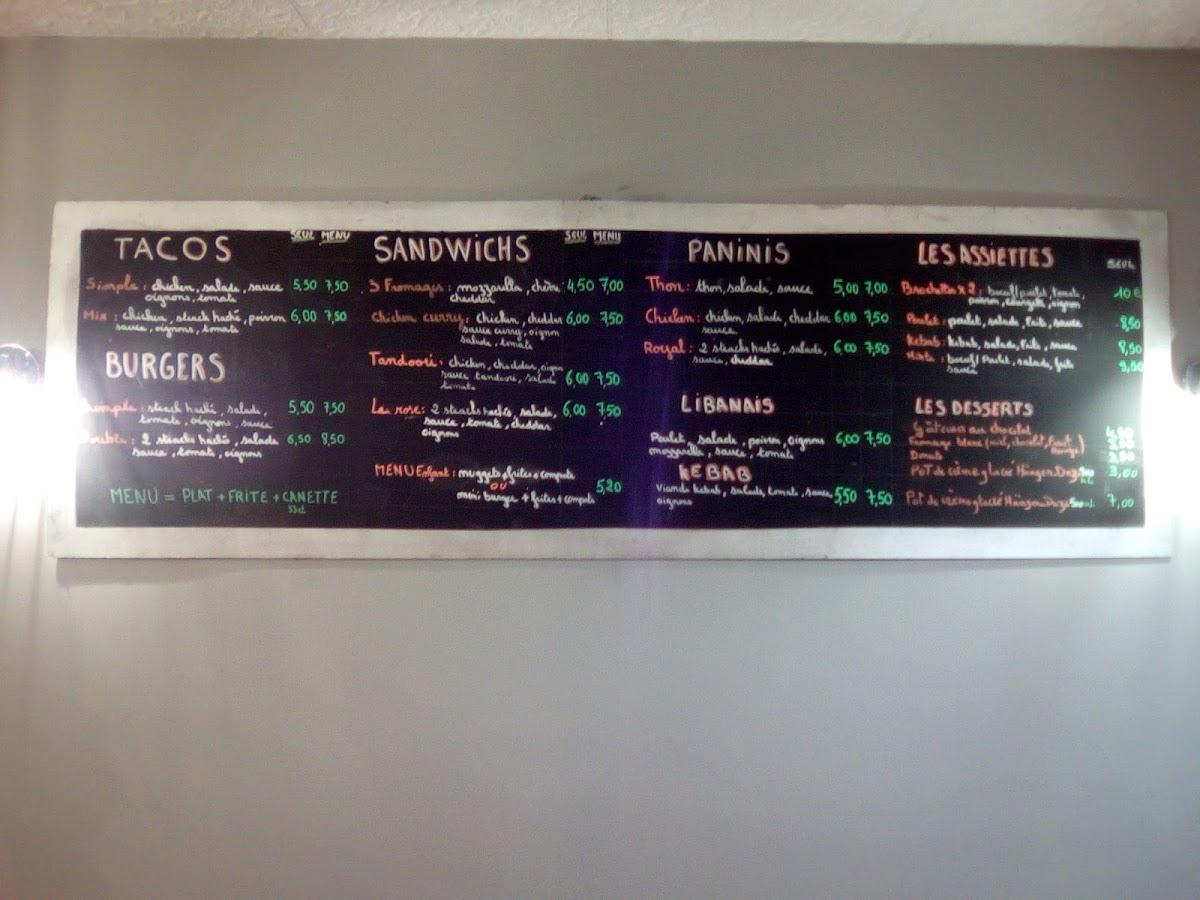 TACOS SEUL MENU
Simple : chicken, salade, sauce 5,50 7,50
oignons, tomate
Mix : chicken, steack haché, poivron 6,00 7,50
sauce, oignons, tomate
BURGERS
steack haché, salade, 5,50 7,50
tomate, oignons, sauce
Double : 2 steacks hachés, salade 6,50 8,50
sauce, tomate, oignons
MENU = PLAT + FRITE + CANETTE
33cl
SANDWiCHS SEUL MENU
3 Fromages : mozzarella, chèvre 4,50 7,00
cheddar
Chicken curry : chicken, cheddar 6,00 7,50
sauce curry, oignon
salade, tomate
Tandoori : chicken, cheddar, oignon
sauce tandoori, salade 6,00 7,50
tomate
La rose : 2 steacks hachés, salade, 6,00 7,50
sauce, tomate, cheddar
oignons
MENU Enfant : nuggets, frites + compote
OU 5,20
mini burger + frites + compote
PANiNiS
Thon : thon, salade, sauce 5,00 7,00
Chicken : chicken, salade, cheddar 6,00 7,50
sauce
Royal : 2 steacks hachés, salade, 6,00 7,50
sauce, cheddar
LiBANAiS
Poulet, salade, poivron, oignons 6,00 7,50
mozzarella, sauce, tomate
KEBAB
Viande kebab, salade, tomate, sauce 5,50 7,50
oignons
LES ASSiETTES SEUL
Brochettes x 2 : boeuf/poulet, tomate, 10 €
poivron, oignon
Poulet : poulet, salade, frits, sauce 8,50
Kebab : kebab, salade, frits, sauce 8,50
Mixte : boeuf Poulet, salade, frits 9,50
sauce
LES DESSERTS
Gâteau au chocolat
Fromage blanc
Donuts
POT de crème glacé Häagen Dazs 3,00
Pot de crème glacé Häagen Dazs 7,00